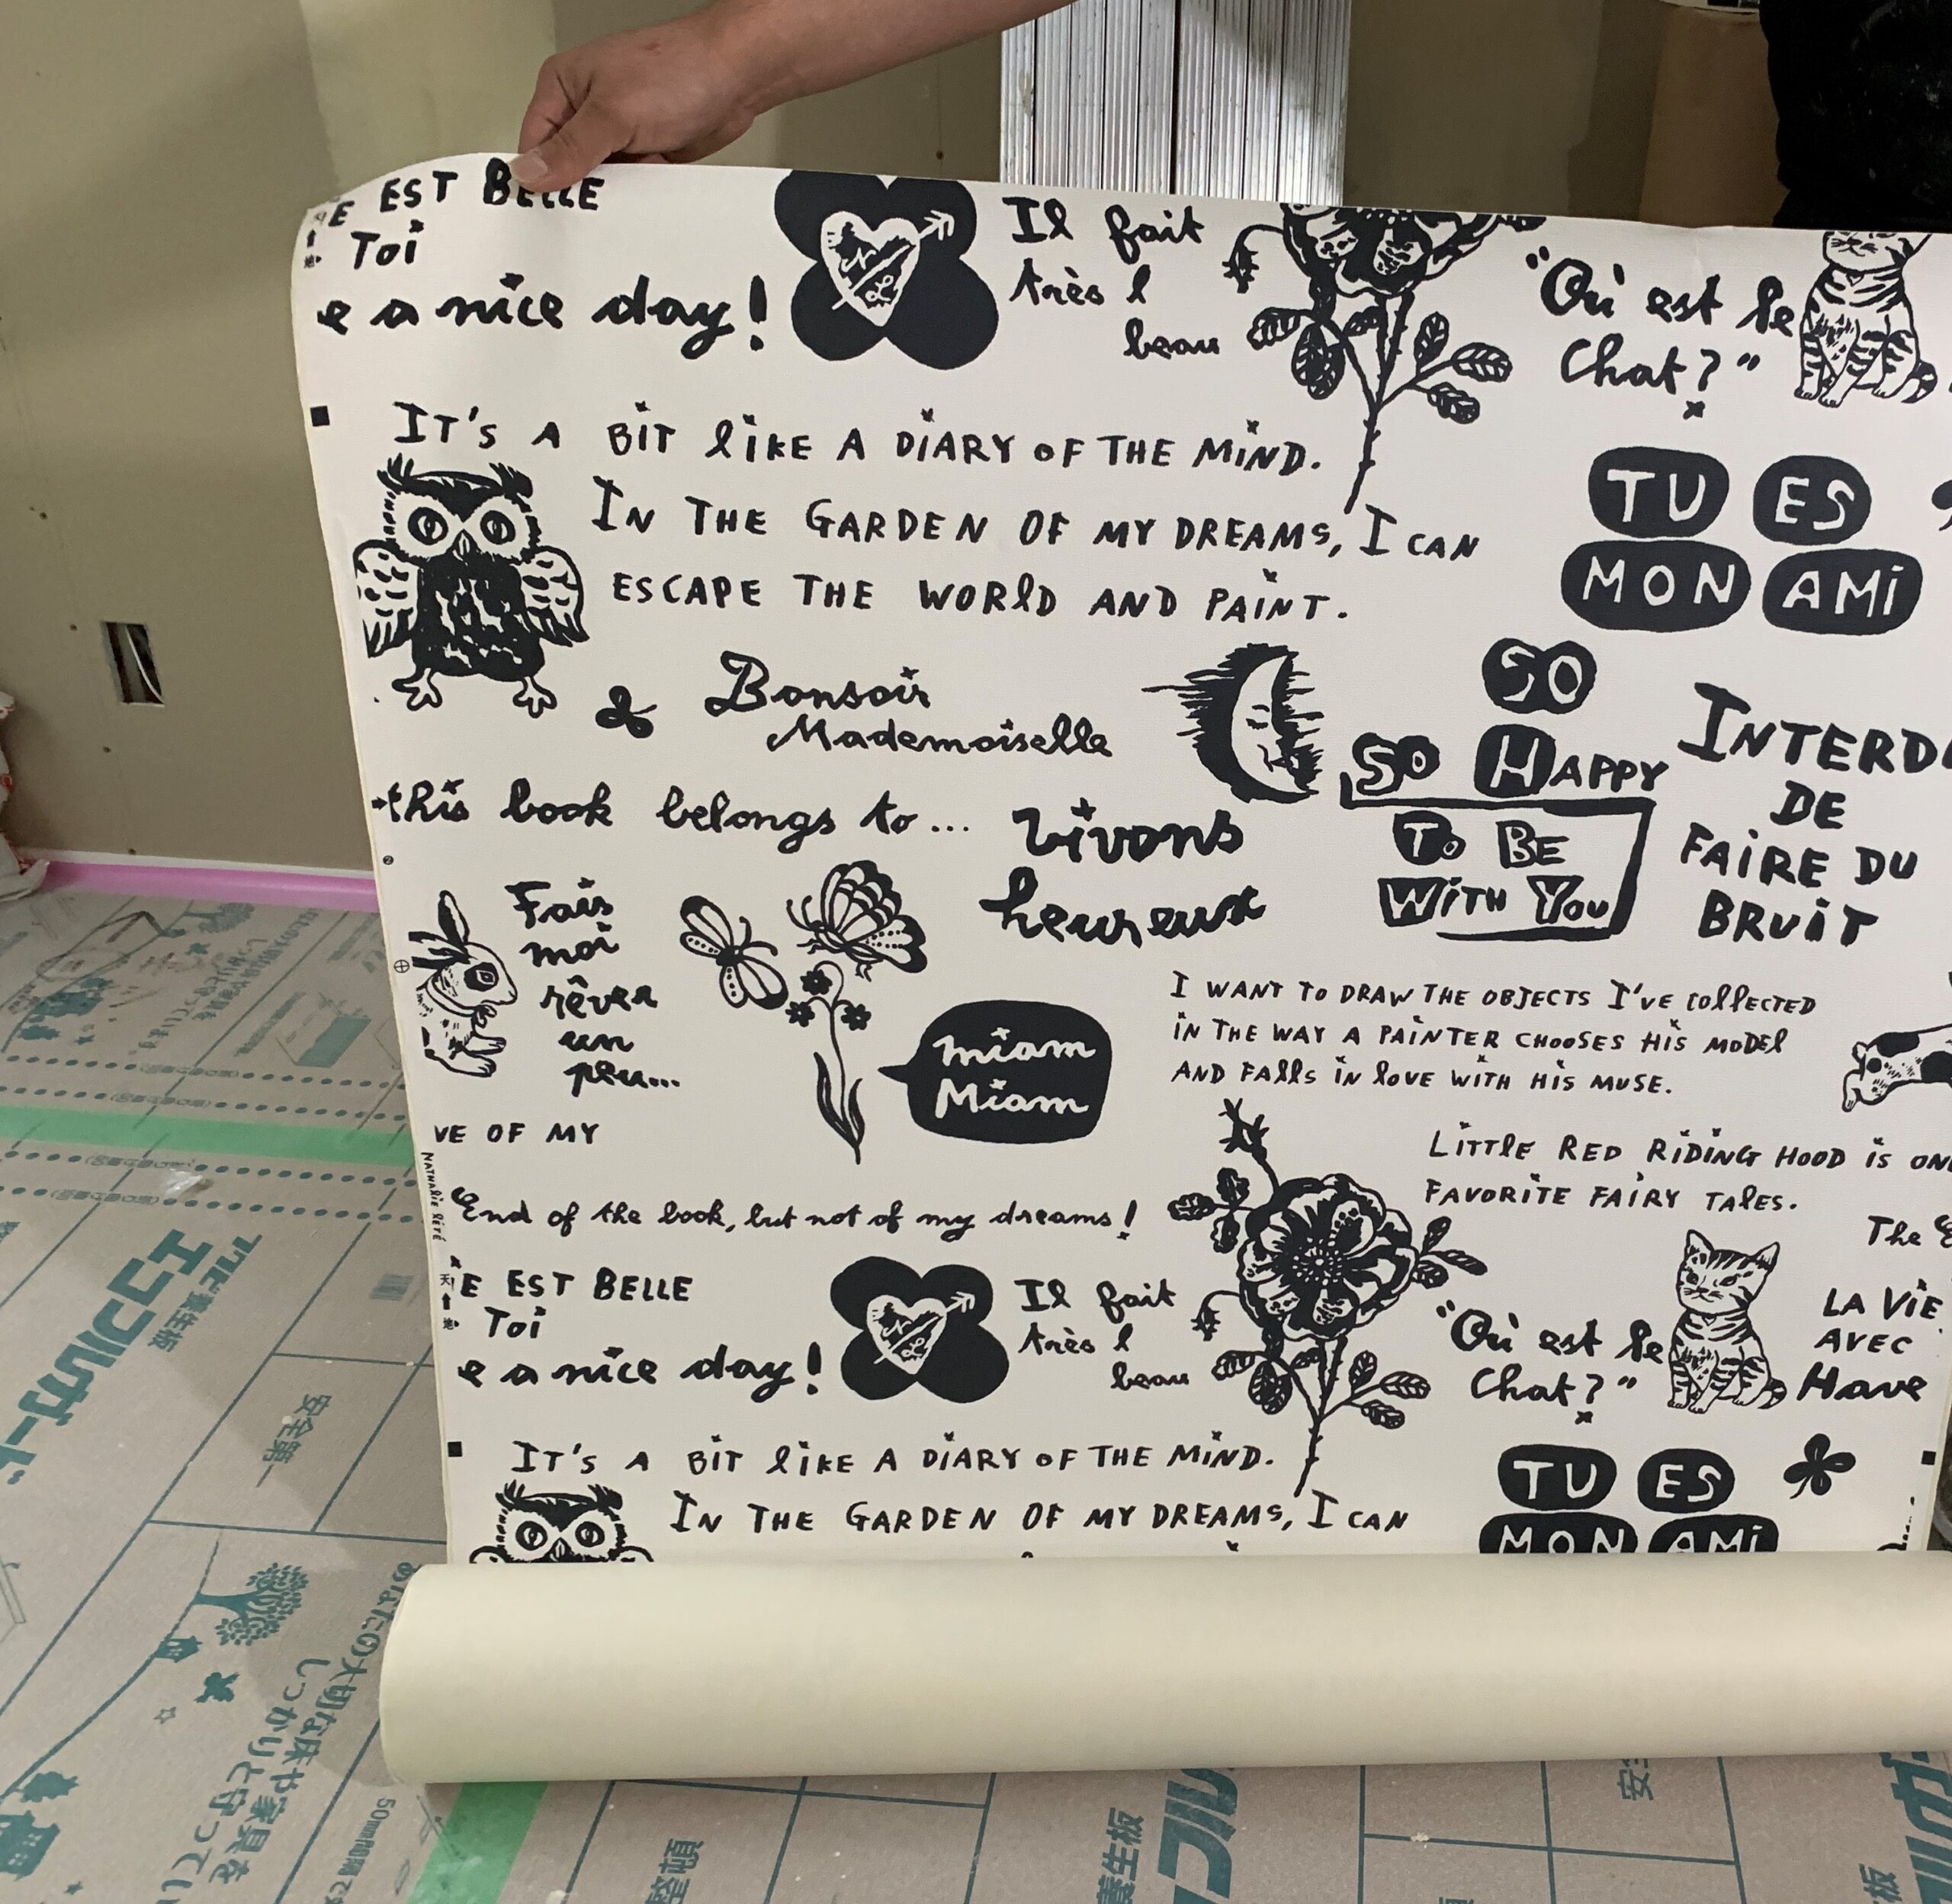 E EST BELLE
Toi
e a nice day!
Il fait
très
beau
"Où est le
Chat?"
IT'S A BIT LIKE A DIARY OF THE MIND.
IN THE GARDEN OF MY DREAMS, I CAN
ESCAPE THE WORLD AND PAINT.
TU ES
MON AMI
Bonsoir
Mademoiselle
SO
SO HAPPY
TO BE
WITH YOU
INTERDI
DE
FAIRE DU
BRUIT
this book belongs to...
vivons
heureux
Fais
moi
rêver
un
peu...
miam
Miam
I WANT TO DRAW THE OBJECTS I'VE COLLECTED
IN THE WAY A PAINTER CHOOSES HIS MODEL
AND FALLS IN LOVE WITH HIS MUSE.
VE OF MY
LITTLE RED RIDING HOOD IS ONE
FAVORITE FAIRY TALES.
NATHALIE LÉTÉ
End of the book, but not of my dreams!
The E
天
地
E EST BELLE
Toi
e a nice day!
Il fait
très
beau
"Où est le
Chat?"
LA VIE
AVEC
Have
IT'S A BIT LIKE A DIARY OF THE MIND.
IN THE GARDEN OF MY DREAMS, I CAN
TU ES
MON AMI
エコフルガード
養生板
安全第一
あなたの大切な床や家具を
しっかりと守ってい
整頓
養生板